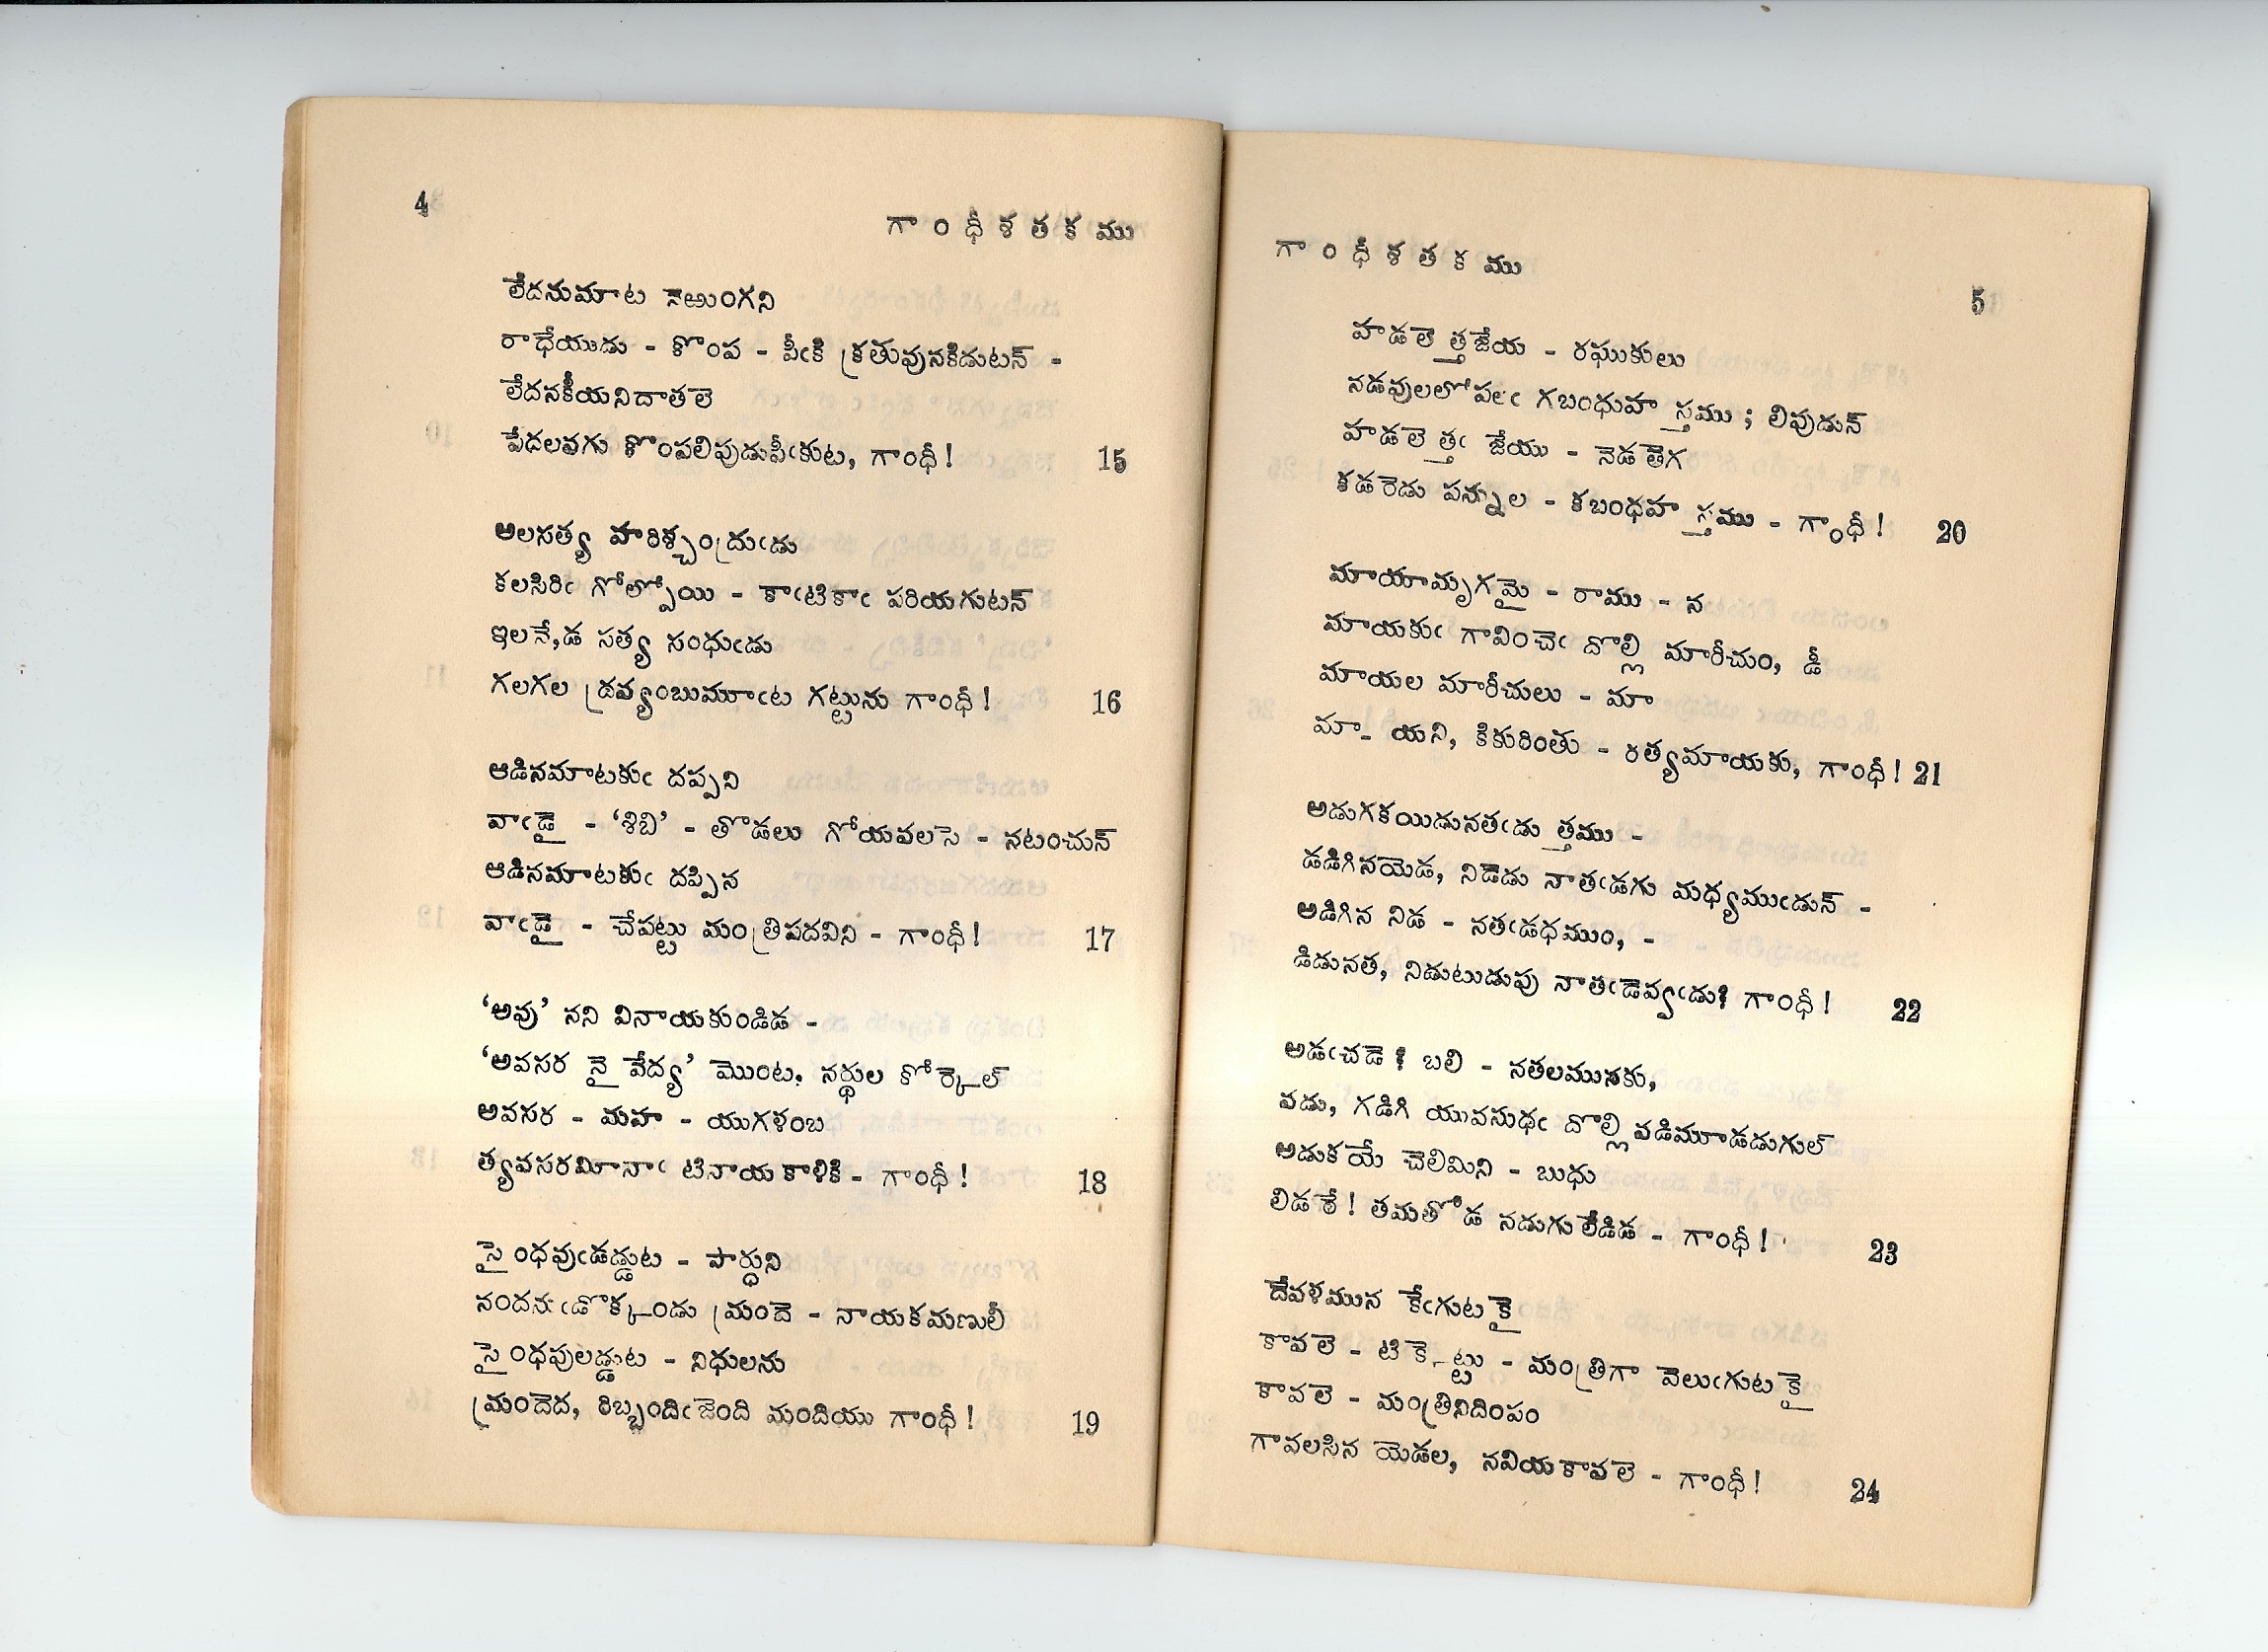 4
గాంధీశతకము
లేదనుమాట నెఱుంగని
రాధేయుడు - కొంప - పీఁకి క్రతువునకిడుటన్ -
లేదనకీయనిదాతలె
పేదలవగు కొంపలిపుడుపీఁకుట, గాంధీ! 15
అలసత్య హరిశ్చంద్రుఁడు
కలసిరిఁ గోల్పోయి - కాఁటికాఁ పరియగుటన్
ఇలనే,డ సత్య సంధుఁడు
గలగల ద్రవ్యంబుమూఁట గట్టును గాంధీ! 16
ఆడినమాటకుఁ దప్పని
వాఁడై - ‘శిబి’ - తొడలు గోయవలసె - నటంచున్
ఆడినమాటకుఁ దప్పిన
వాఁడై - చేపట్టు మంత్రిపదవిని - గాంధీ! 17
‘అవు’ నని వినాయకుండిడ -
‘అవసర నై వేద్య’ మొంట, నర్థుల కోర్కెల్
అవసర - మహ - యుగళంబ
త్యవసరమీనాఁ టినాయకాళికి - గాంధీ! 18
సైంధవుఁడడ్డుట - పార్థుని
నందనుఁడొక్కండు మ్రందె - నాయకమణులీ
సైంధవులడ్డుట - నిధులను
మ్రందెద, రిబ్బందిఁజెంది మందియు గాంధీ! 19
గాంధీశతకము
5
హడలెత్తజేయ - రఘుకులు
నడవులలోపలఁ గబంధుహస్తము; లిపుడున్
హడలెత్తఁ జేయు - నెడతెగ
కడరెడు పన్నుల - కబంధహస్తము - గాంధీ! 20
మాయామృగమై - రాము - న
మాయకుఁ గావించెఁ దొల్లి మారీచుం, డీ
మాయల మారీచులు - మా
మా- యని, కికురింతు - రత్యమాయకు, గాంధీ! 21
అడుగకయిడునతఁడుత్తము -
డడిగినయెడ, నిడెడు నాతఁడగు మధ్యముఁడున్ -
అడిగిన నిడ - నతఁడధముం, -
డిడునత, నిడుటుడుపు నాతఁడెవ్వఁడు? గాంధీ! 22
అడఁచడె? బలి - నతలమునకు,
వడు, గడిగి యువసుధఁ దొల్లి వడిమూడడుగుల్
అడుకయే చెలిమిని - బుధు
లిడరే! తమతోడ నడుగులేడిడ - గాంధీ! 23
దేవళమున కేఁగుటకై
కావలె - టికెట్టు - మంత్రిగా వెలుఁగుటకై
కావలె - మంత్రినిదింపం
గావలసిన యెడల, నవియకావలె - గాంధీ! 24